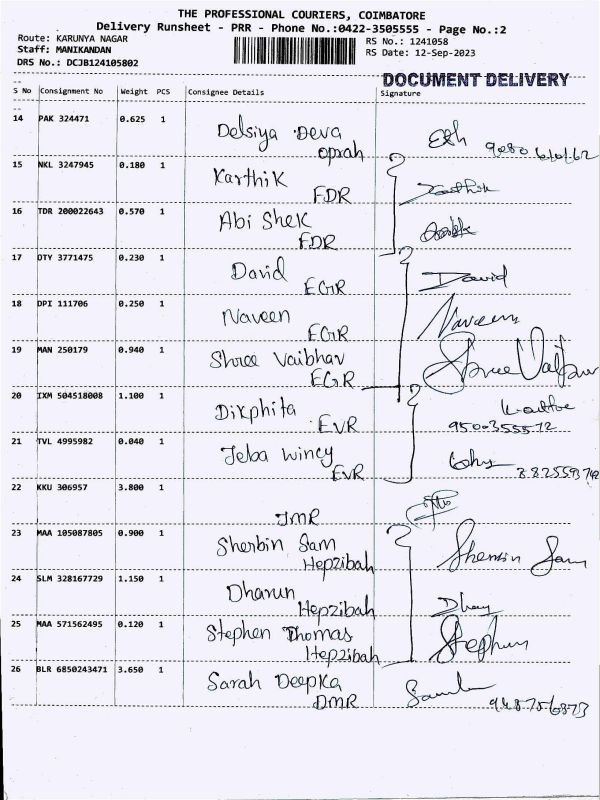 THE PROFESSIONAL COURIERS, COIMBATORE
Delivery Runsheet - PRR - Phone No.:0422-3505555 - Page No.:2
Route: KARUNYA NAGAR
RS No.: 1241058
Staff: MANIKANDAN
RS Date: 12-Sep-2023
DRS No.: DCJB124105802
DOCUMENT DELIVERY
S No Consignment No Weight PCS Consignee Details Signature
14 PAK 324471 0.625 1 Delsiya Deva
oprah
15 NKL 3247945 0.180 1 Karthik Karthik
FDR
16 TDR 200022643 0.570 1 Abi Shek
FDR
17 OTY 3771475 0.230 1 David David
EGR
18 DPI 111706 0.250 1 Naveen Naveen
EGR
19 MAN 250179 0.940 1 Shree Vaibhav
EGR
20 IXM 504518008 1.100 1 Dikphita
EVR
21 TVL 4995982 0.040 1 Jeba Wincy
EVR
22 KKU 306957 3.800 1
JMR
23 MAA 105087805 0.900 1 Sherbin Sam
Hepzibah
24 SLM 328167729 1.150 1 Dharun
Hepzibah
25 MAA 571562495 0.120 1 Stephen Thomas Stephen
Hepzibah
26 BLR 6850243471 3.650 1 Sarah Deepka
DMR